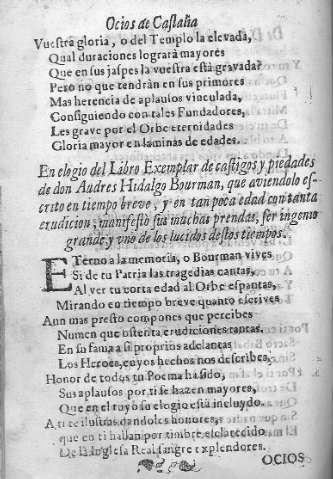 Ocios de Castalia
Vuestra gloria, o del Templo la elevada,
Qual duraciones logrará mayores
Que en sus jaspes la vuestra está gravada?
Pero no que tendrán en sus primores
Mas herencia de aplausos vinculada,
Consiguiendo con tales Fundadores,
Les grave por el Orbe eternidades
Gloria mayor en laminas de edades.
En elogio del Libro Exemplar de castigos y piedades
de don Andres Hidalgo Bourman, que aviendolo es-
crito en tiempo breve, y en tan poca edad con tanta
erudicion, manifestó sus muchas prendas, ser ingenio
grande y vno de los lucidos destos tiempos.
ETerno a la memoria, o Bourman vives
Si de tu Patria las tragedias cantas,
Al ver tu corta edad al Orbe espantas,
Mirando en tiempo breve quanto escrives
Aun mas presto compones que percibes
Numen que ostenta erudiciones tantas.
En su fama a si proprios adelantas
Los Heroes, cuyos hechos nos describes,
Honor de todos tu Poema ha sido,
Sus aplausos por ti se hazen mayores,
Que en el tuyo su elogio está incluydo.
A ti te ilustras dandoles honores,
que en ti hallan por timbre esclarecido
De la Inglesa Real sangre explendores.
OCIOS